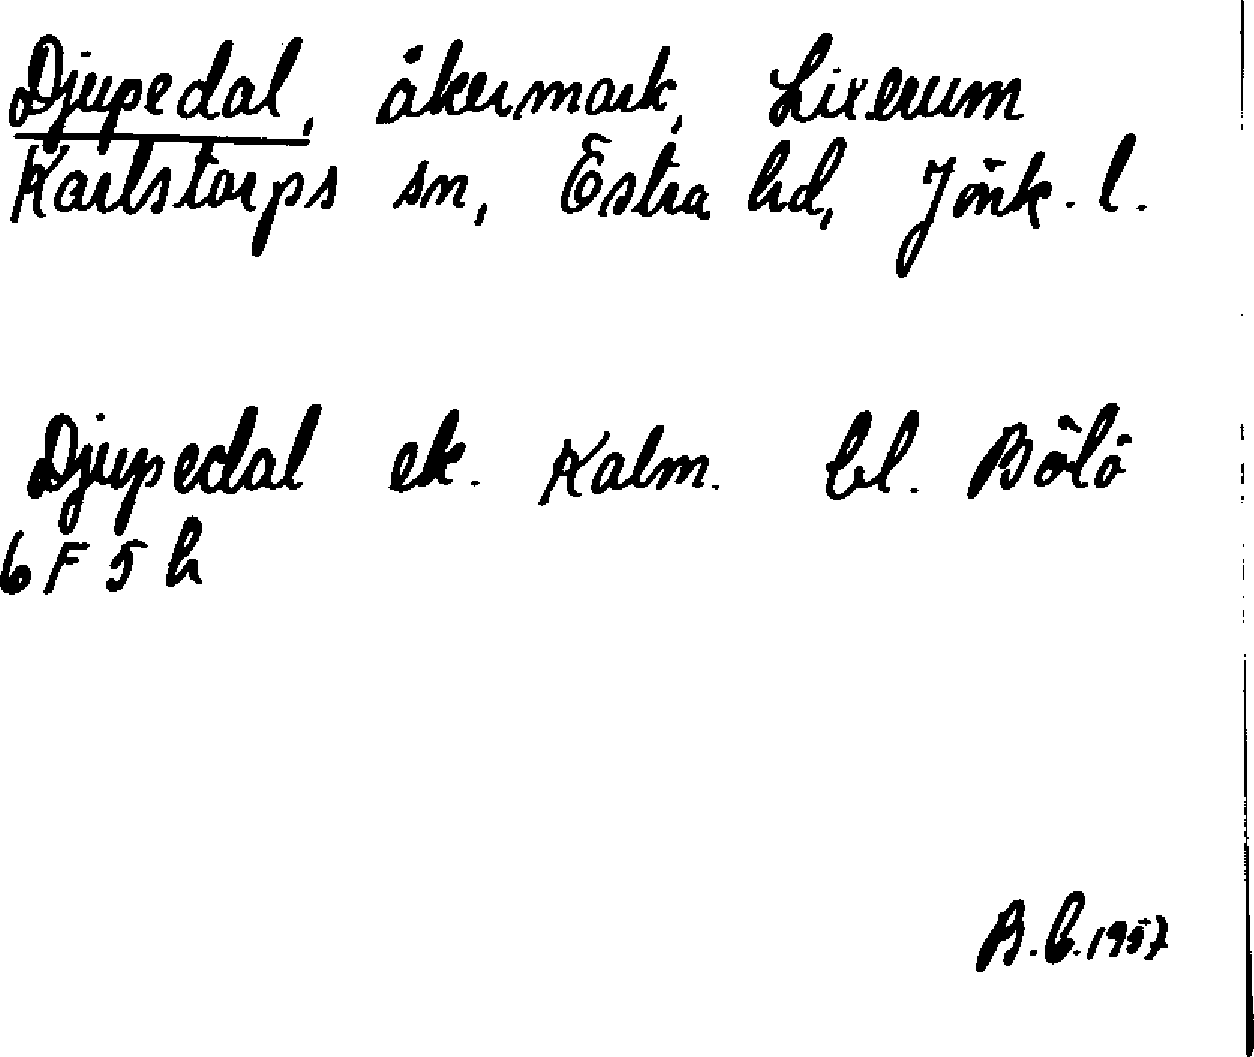 Djupedal, åkermark, Lixerum
Karlstorps sn, Östra hd, Jönk. l.
Djupedal ek. Kalm. bl. Bölö
6 F 5 h